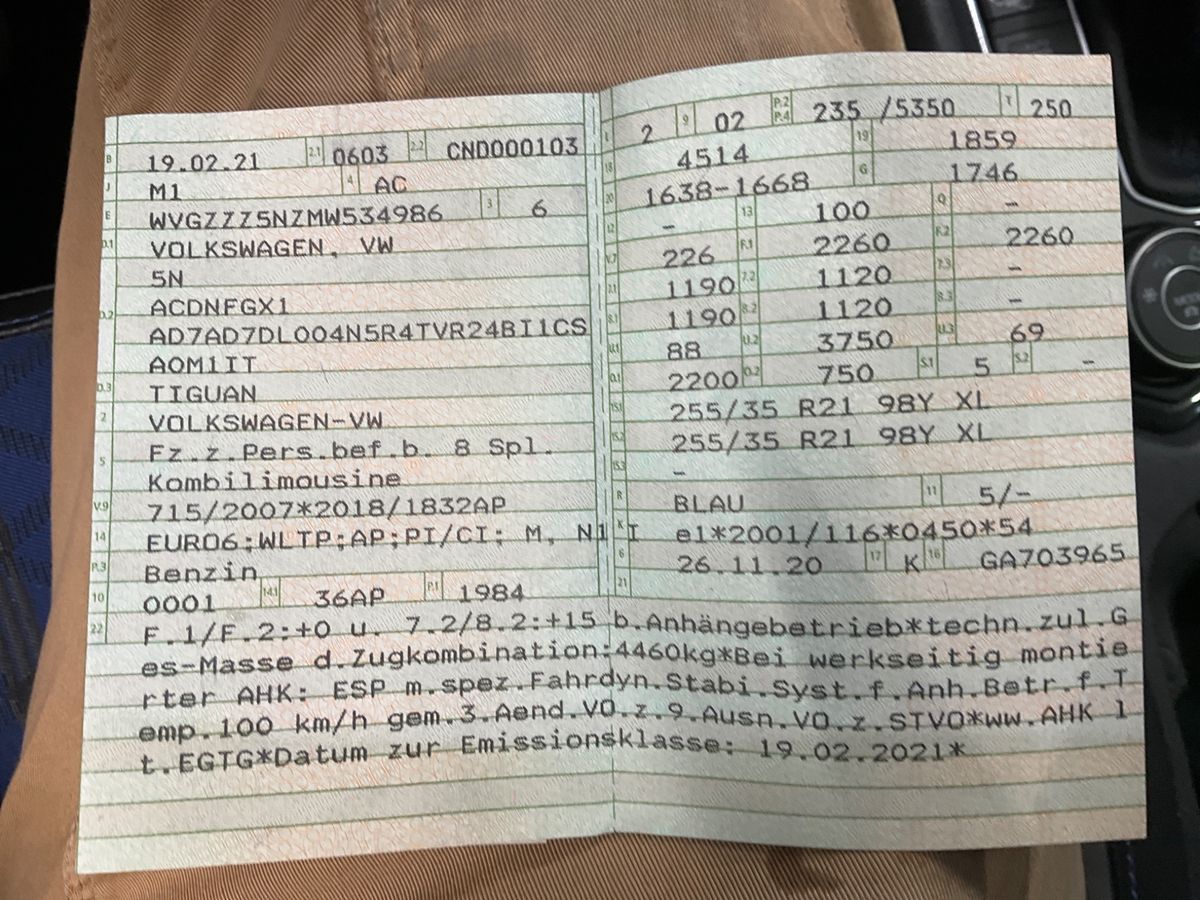 B 19.02.21 2.1 0603 2.2 CND000103
J M1 4 AC
E WVGZZZ5NZMW534986 3 6
D.1 VOLKSWAGEN, VW
5N
D.2 ACDNFGX1
AD7AD7DL004N5R4TVR24BI1CS
AOM1IT
D.3 TIGUAN
2 VOLKSWAGEN-VW
5 Fz.z.Pers.bef.b. 8 Spl.
Kombilimousine
V.9 715/2007*2018/1832AP
14 EURO6;WLTP;AP;PI/CI; M, N1 I
P.3 Benzin
10 0001 14.1 36AP P.1 1984
L 2 9 02 P.2 P.4 235 /5350 T 250
18 4514 19 1859
20 1638-1668 G 1746
12 - 13 100 Q -
V.7 226 F.1 2260 F.2 2260
7.1 1190 7.2 1120 7.3 -
8.1 1190 8.2 1120 8.3 -
U.1 88 U.2 3750 U.3 69
O.1 2200 O.2 750 S.1 5 S.2 -
15.1 255/35 R21 98Y XL
15.2 255/35 R21 98Y XL
15.3 -
R BLAU 11 5/-
K e1*2001/116*0450*54
6 26.11.20 17 K 16 GA703965
21
22 F.1/F.2:+0 u. 7.2/8.2:+15 b.Anhängebetrieb*techn.zul.G
es-Masse d.Zugkombination:4460kg*Bei werkseitig montie
rter AHK: ESP m.spez.Fahrdyn.Stabi.Syst.f.Anh.Betr.f.T
emp.100 km/h gem.3.Aend.VO.z.9.Ausn.VO.z.STVO*ww.AHK l
t.EGTG*Datum zur Emissionsklasse: 19.02.2021*